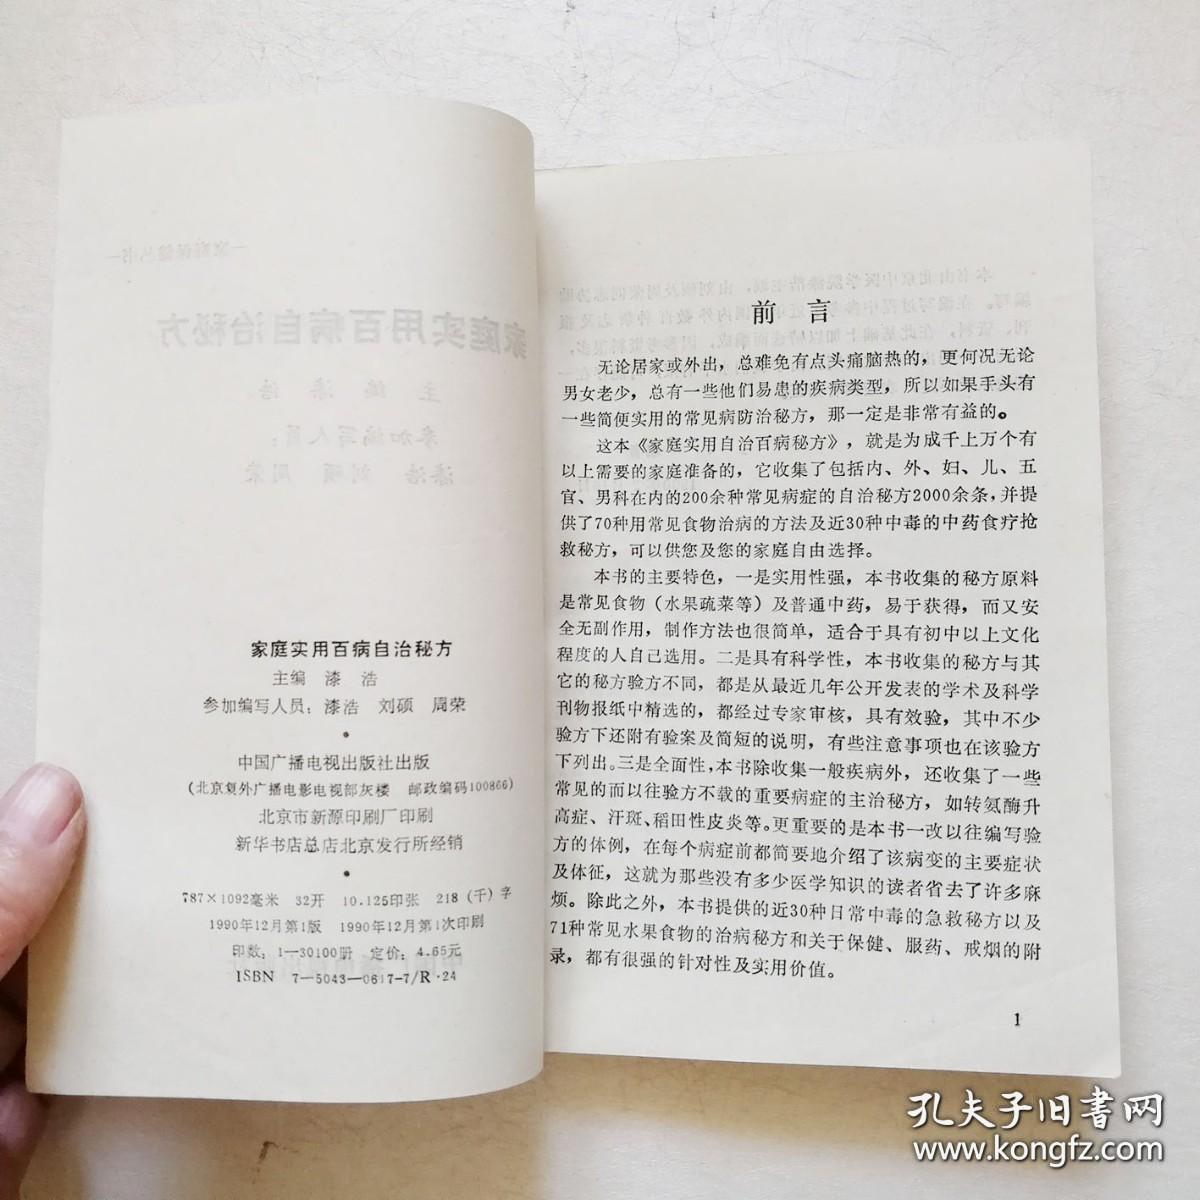 家庭实用百病自治秘方
主编 漆 浩
参加编写人员：漆浩 刘硕 周荣
中国广播电视出版社出版
（北京复外广播电影电视部灰楼 邮政编码100866）
北京市新源印刷厂印刷
新华书店总店北京发行所经销
787×1092毫米 32开 10.125印张 218（千）字
1990年12月第1版 1990年12月第1次印刷
印数：1—30100册 定价：4.65元
ISBN 7－5043－0617－7/R·24
前 言
无论居家或外出，总难免有点头痛脑热的，更何况无论
男女老少，总有一些他们易患的疾病类型，所以如果手头有
一些简便实用的常见病防治秘方，那一定是非常有益的。
这本《家庭实用自治百病秘方》，就是为成千上万个有
以上需要的家庭准备的，它收集了包括内、外、妇、儿、五
官、男科在内的200余种常见病症的自治秘方2000余条，并提
供了70种用常见食物治病的方法及近30种中毒的中药食疗抢
救秘方，可以供您及您的家庭自由选择。
本书的主要特色，一是实用性强，本书收集的秘方原料
是常见食物（水果疏菜等）及普通中药，易于获得，而又安
全无副作用，制作方法也很简单，适合于具有初中以上文化
程度的人自己选用。二是具有科学性，本书收集的秘方与其
它的秘方验方不同，都是从最近几年公开发表的学术及科学
刊物报纸中精选的，都经过专家审核，具有效验，其中不少
验方下还附有验案及简短的说明，有些注意事项也在该验方
下列出。三是全面性，本书除收集一般疾病外，还收集了一些
常见的而以往验方不载的重要病症的主治秘方，如转氨酶升
高症、汗斑、稻田性皮炎等。更重要的是本书一改以往编写验
方的体例，在每个病症前都简要地介绍了该病变的主要症状
及体征，这就为那些没有多少医学知识的读者省去了许多麻
烦。除此之外，本书提供的近30种日常中毒的急救秘方以及
71种常见水果食物的治病秘方和关于保健、服药、戒烟的附
录，都有很强的针对性及实用价值。
1
孔夫子旧书网
www.kongfz.com